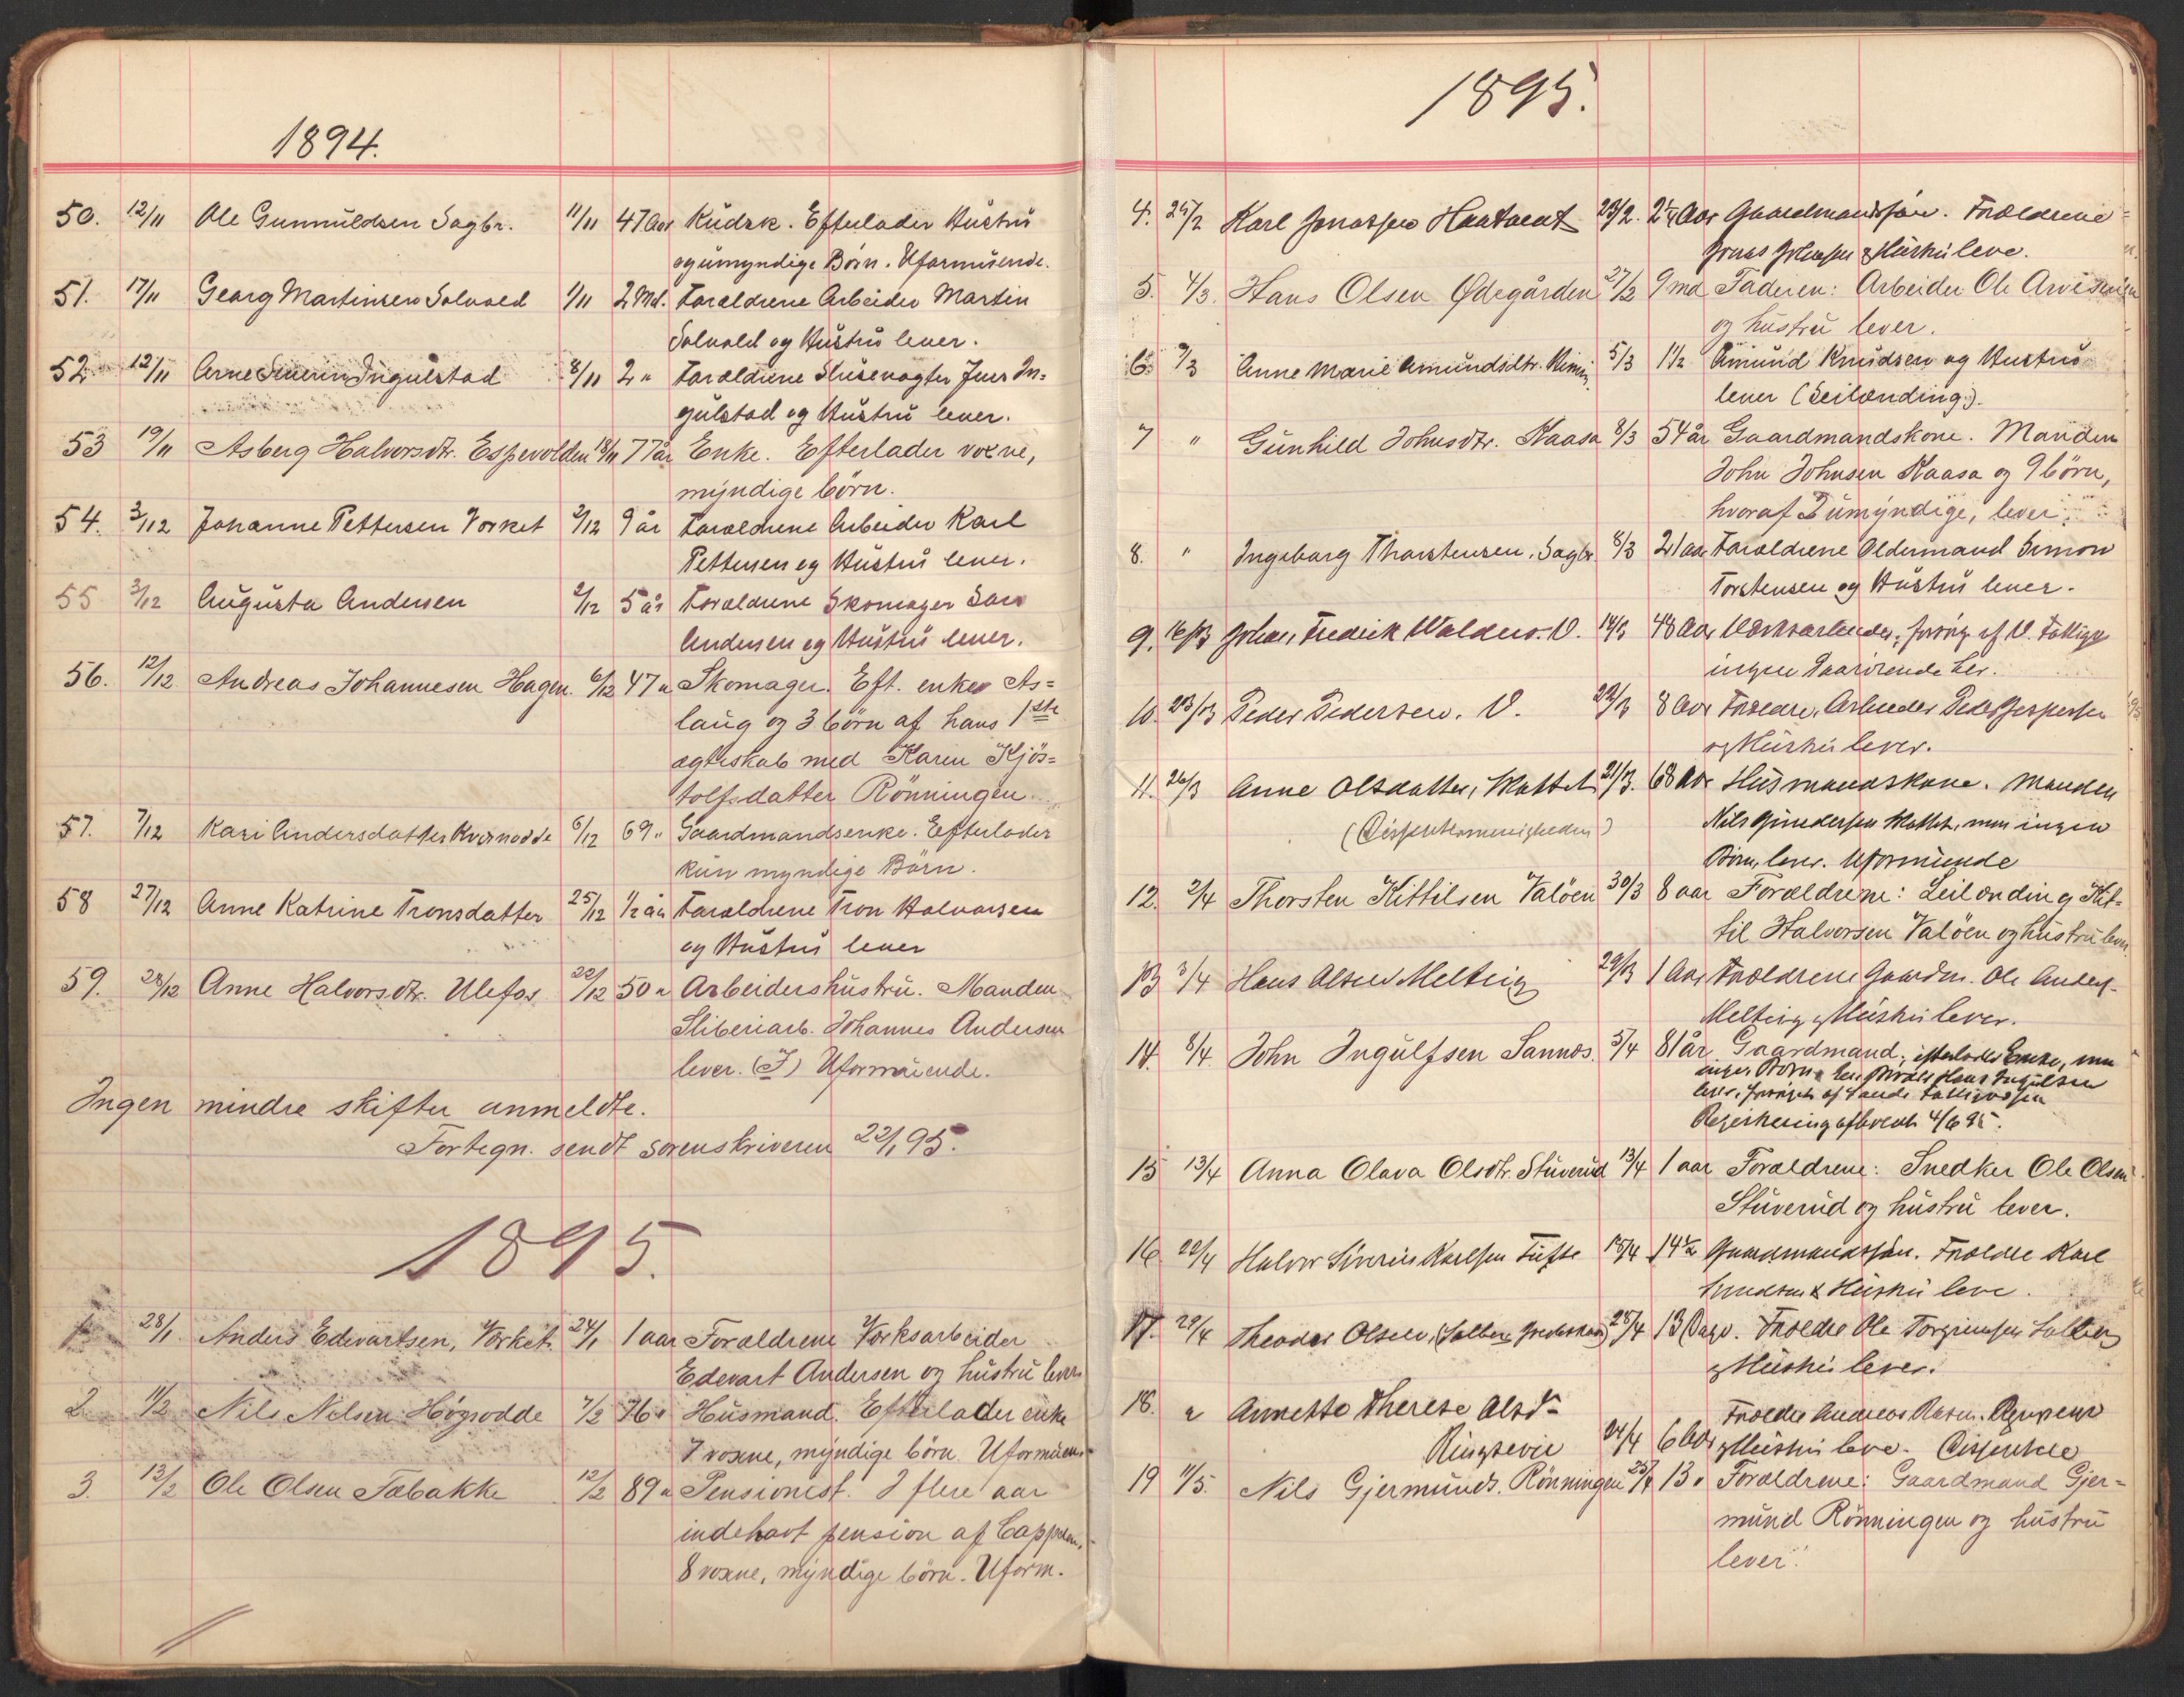 1894.
50. 12/11 Ole Gunnuldsen Sagbr. 11/11 47 Aar Kudsk. Efterlader Hustru
og umyndige Börn. Uformuende.
51. 17/11 Georg Martinsen Solvold 1/11 2 Md. Forældrene Arbeider Martin
Solvold og Hustru lever.
52 12/11 Arne Severin Ingulstad 8/11 2 " Forældrene Slusevogter Iver In=
gulstad og Hustru lever.
53 19/11 Asberg Halvorsdtr. Espevolden 18/11 77 år Enke. Efterlader voxne,
myndige börn.
54. 3/12 Johanne Pettersen Værket 2/12 9 år Forældrene Arbeider Karl
Pettersen og Hustru lever.
55 3/12 Augusta Andersen 2/12 5 år Forældrene Skomager
Andersen og Hustru lever.
56. 12/12 Andreas Johannesen Hagen 6/12 47 " Skomager. Eft. enke As=
laug og 3 börn af hans 1ste
ægteskab med Karen Kjös=
tolfsdatter Rönningen.
57. 7/12 Kari Andersdatter Kvernodde 6/12 69 " Gaardmandsenke. Efterlader
kun myndige Börn.
58 27/12 Anne Katrine Tronsdatter 25/12 1/2 år Forældrene Tron Halvorsen
og Hustru lever
59. 28/12 Anne Halvorsdtr. Ulefos 22/12 50 " Arbeidershustru. Manden
Sliberiarb. Johannes Andersen
lever. (F) Uformuende.
Ingen mindre skifter anmeldte.
Fortegn. sendt sorenskriveren 22/1 95.
1895.
1. 28/1 Anders Edvartsen, Værket. 24/1 1 aar Forældrene Værksarbeider
Edevart Andersen og hustru lever
2 11/2 Nils Nilsen Högsodde 7/2 76 " Husmand. Efterlader enke
7 voxne, myndige börn. Uformuen.
3. 13/2 Ole Olsen Tabakke 12/2 89 " Pensionist. I flere aar
indehavt pension af Cappelen.
8 voxne, myndige börn. Uform.
1895.
4. 25/2 Karl Jonassen Haatveit 23/2. Aar Gaardmandssön. Forældrene
Jonas Johnsen & Hustru leve.
5. 4/3. Hans Olsen Ødegården 27/2 9 md Faderen: Arbeider Ole
og hustru lever.
6. 9/3 Anne Marie Amundsdtr. 5/3 1 1/2 Amund Knudsen og Hustru
lever (Leilænding).
7 " Gunhild Johnsdtr. Kaasa 8/3 54 år Gaardmandskone. Manden
John Johnsen Kaasa og 9 börn,
hvoraf umyndige, lever.
8. " Ingeborg Thorstensen, Sagbr. 8/3 21 aar Forældrene Oldermand Simon
Torstensen og Hustru lever.
9. 16/3 Johan Fredrik Waldus. V. 14/3 48 Aar Værksarbeider, forsörg. af V. Fattigv
ingen Paarörende lev.
10. 23/3 Peder Pedersen. V. 22/3 8 Aar Foreldre, Arbeider Peder Jespersen
og Hustru lever.
11. 26/3 Anne Olsdatter, Mattet 21/3. 68 Aar Husmandskone. Manden
(Dissentermenigheden) Nils Gundersen Mattet, men ingen
Börn, lever. Uformuende
12. 2/4 Thorsten Kittilsen Valöen 30/3 8 aar Forældrene: Leilænding Kit=
til Halvorsen Valöen og hustru lever
13 3/4 Hans Olsen Melteig 29/3 1 Aar Forældrene Gaardm. Ole Anders.
Melteig & Hustru lever.
14. 8/4. John Ingulfsen Sannes. 5/4 81 år Gaardmand; efterlader Enke, men
ingen Börn. Hans Ingulfsen
lever, forsörget af Saude Fattigvæsen
Registrering afholdt 4/6 95.
15 13/4 Anna Olava Olsdtr. Stuverud 13/4 1 aar Forældrene: Snedker Ole Olsen
Stuverud og hustru lever.
16 22/4 Halvor Severin Karlsen Tufte 18/4 14 Gaardmandssön. Forældre Karl
Knudsen & Hustru leve.
17. 29/4 Theodor Olsen, (Solberg ) 28/4 13 Dage. Forældre Ole Torgrimsen Solberg
& Hustru lever.
18. " Annette Therese Olsdr. Forældre Andreas
Ringsevie 24/4 6 Aar & Hustru leve. Dissentere
19 11/5. Nils Gjermunds. Rönningen 25/4 13 " Forældrene: Gaardmand Gjer=
mund Rönningen og hustru
lever.